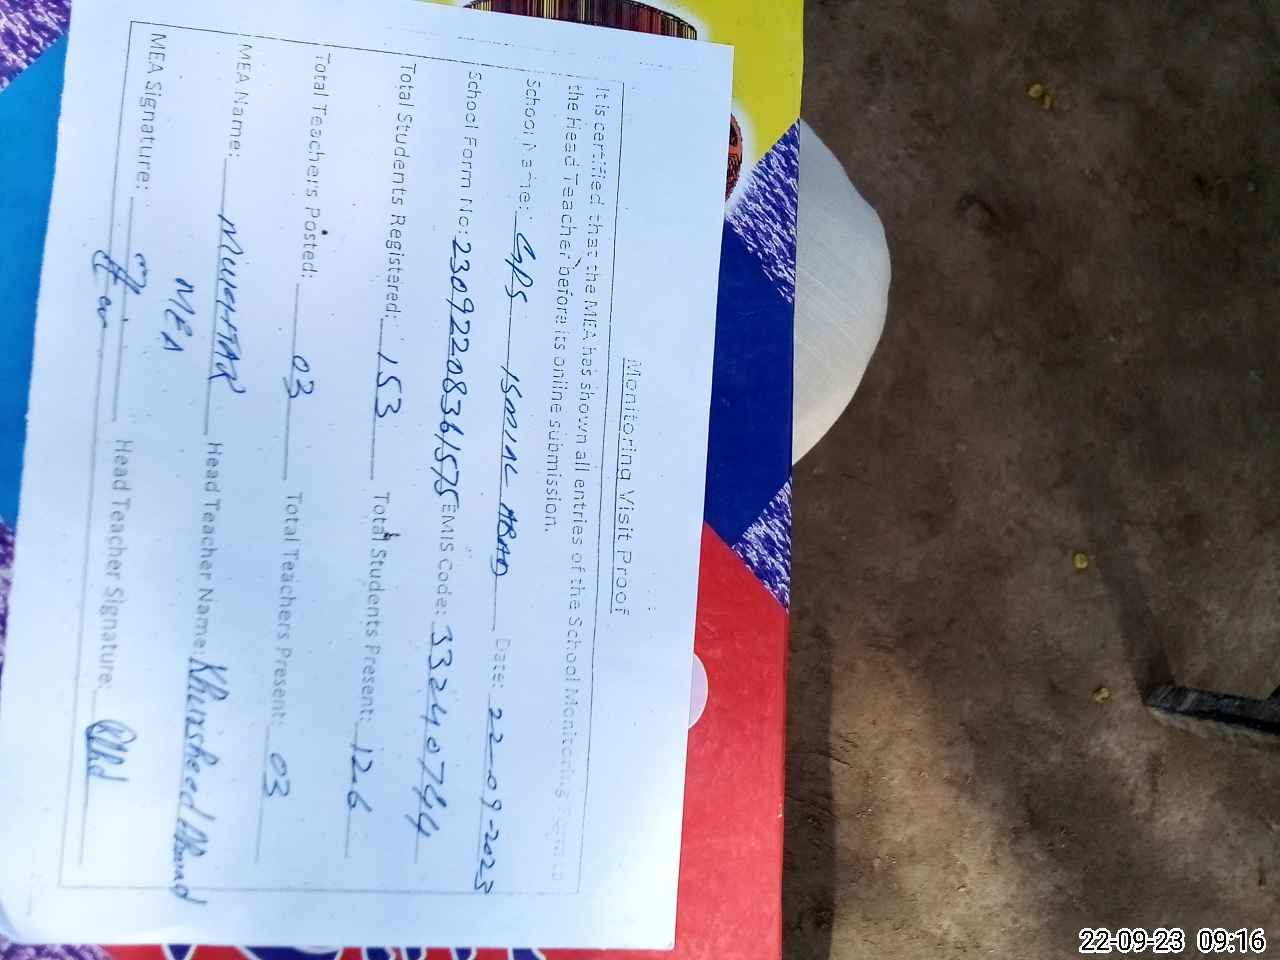 Monitoring Visit Proof
It is certified that the MEA has shown all entries of the School Monitoring Form to
the Head Teacher before its online submission.
School Name: GPS ISMIAL ABAD Date: 22-09-2023
School Form No: 23092208361575 EMIS Code: 33240744
Total Students Registered: 153 Total Students Present: 126
Total Teachers Posted: 03 Total Teachers Present: 03
MEA Name: MUKHTAR Head Teacher Name: Khursheed Ahmad
MEA
MEA Signature: Head Teacher Signature:
22-09-23 09:16